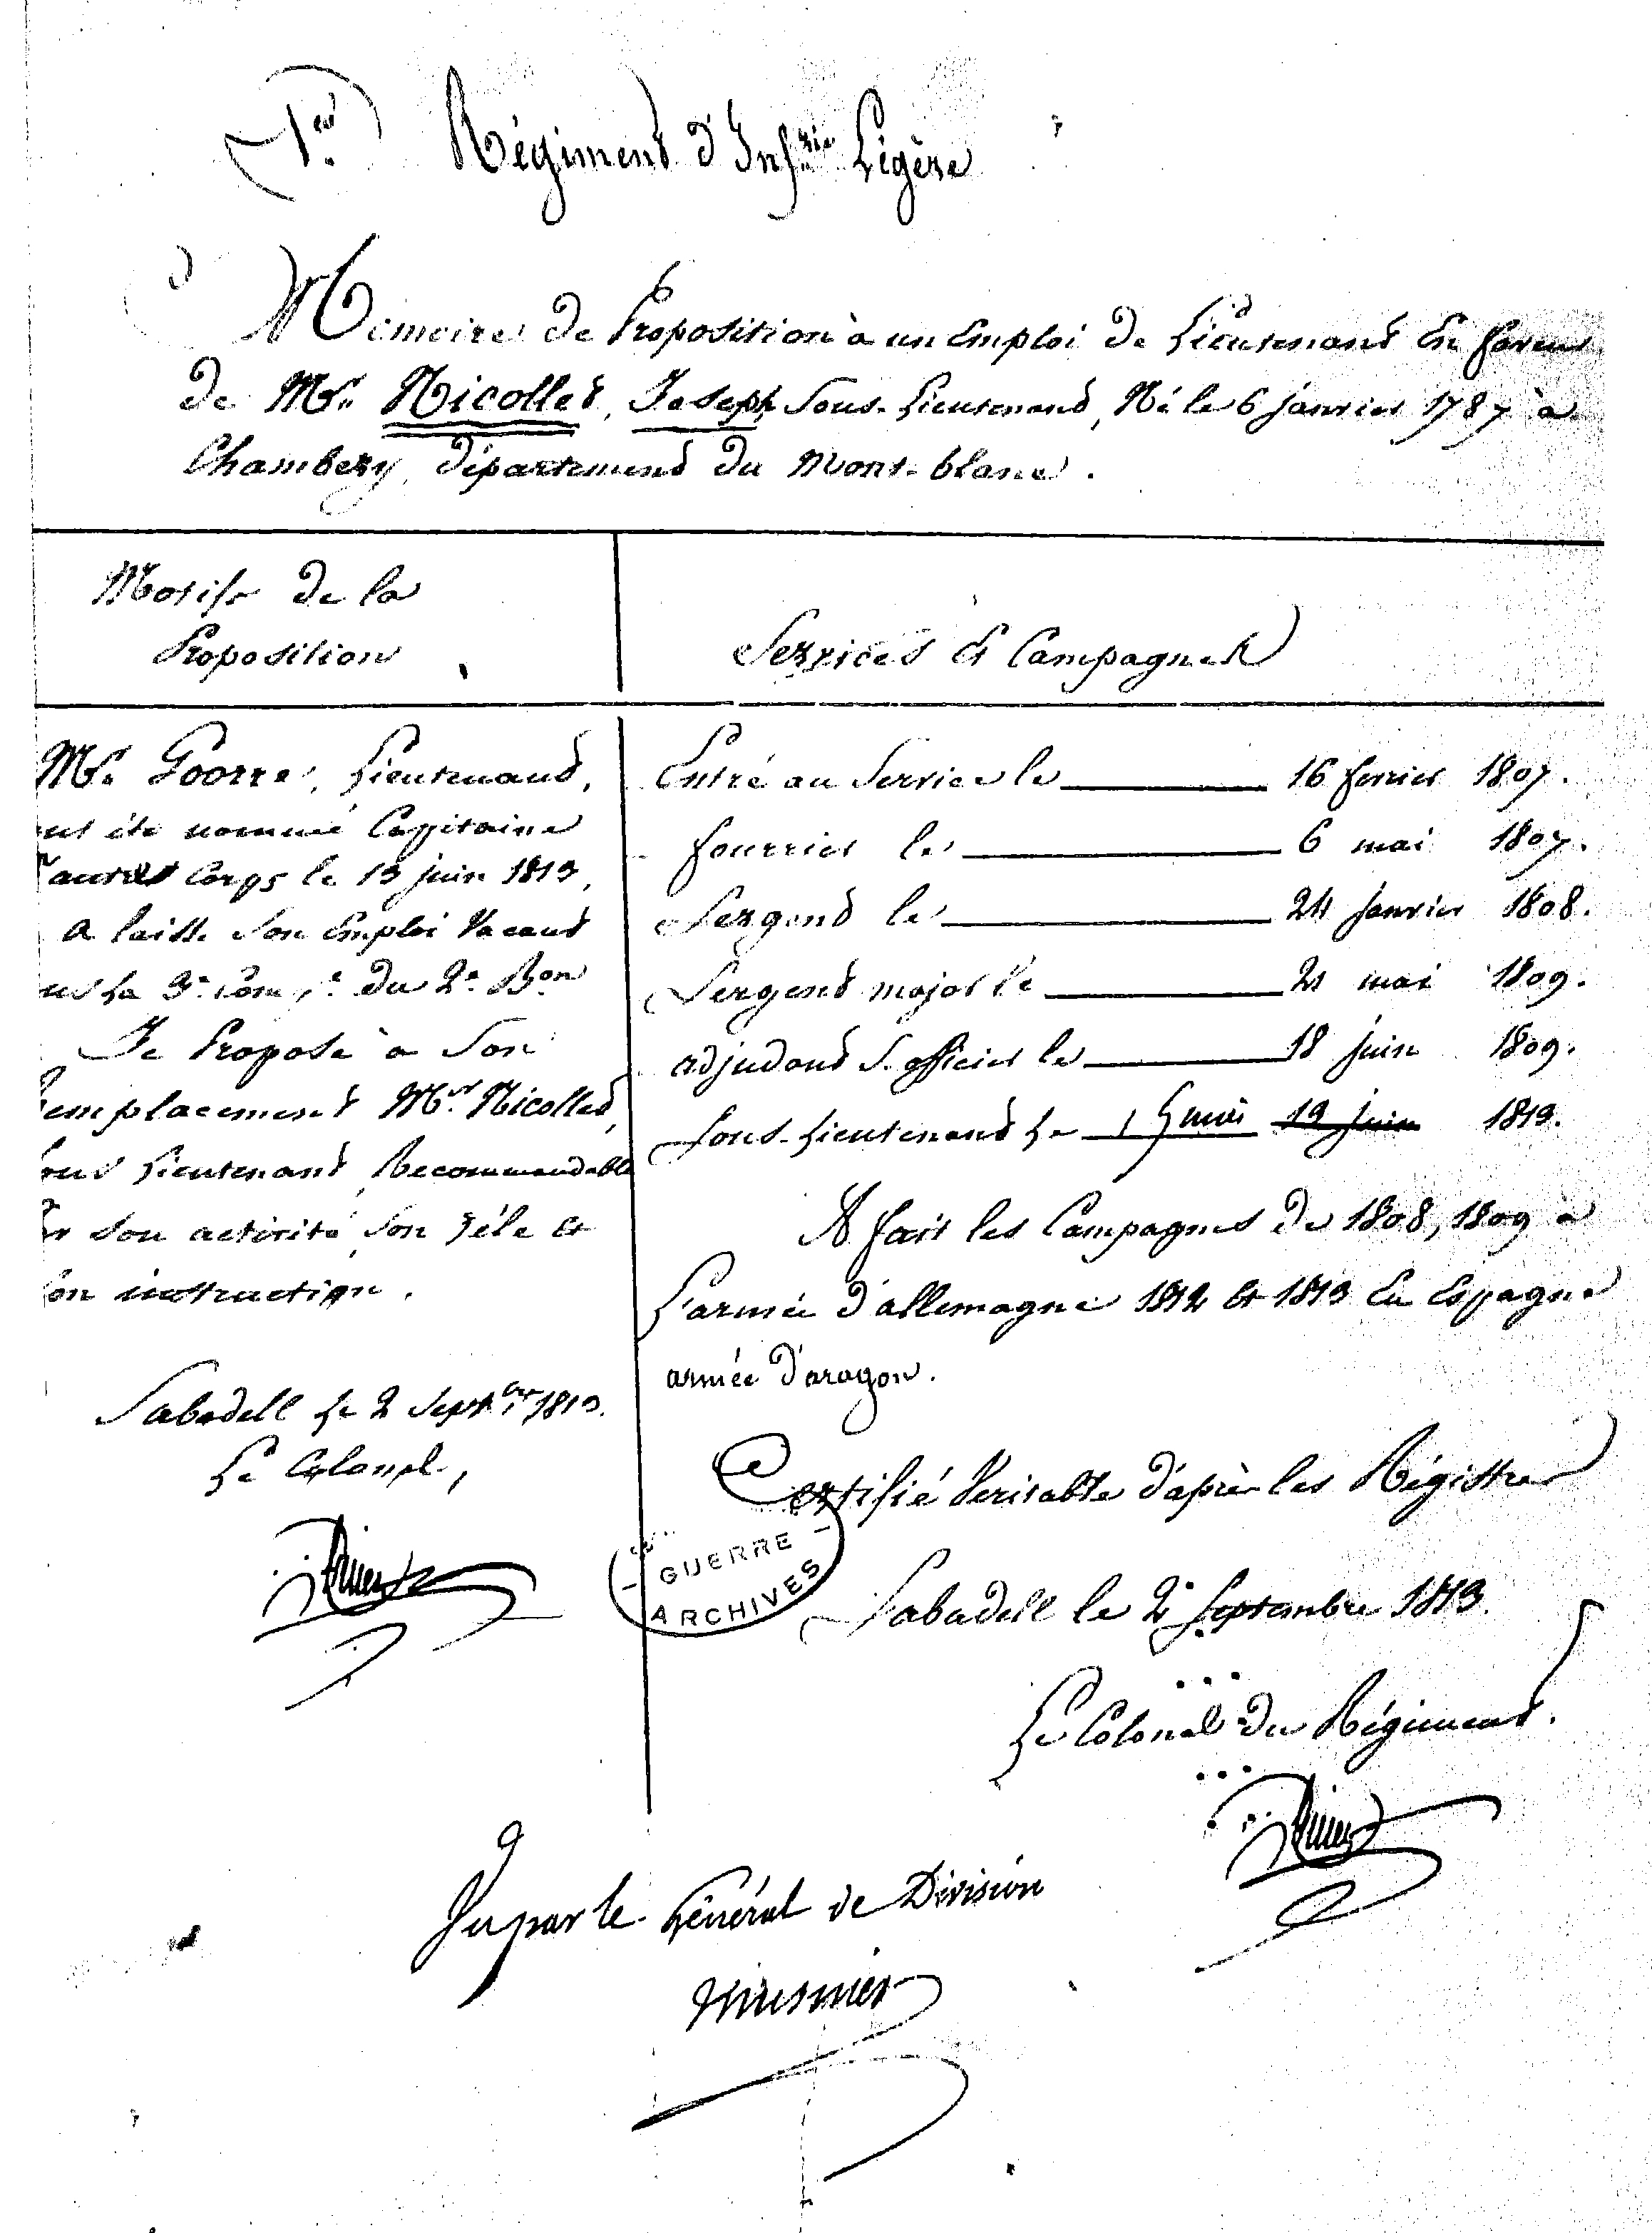 1er Régiment d'Infrie Légère
Mémoire de Proposition à un Emploi de Lieutenant En faveur
de Mr. Nicollet, Joseph Sous-Lieutenant, Né le 6 janvier 1787 à
Chambery, département du Mont-blanc.
Motifs de la
Proposition
Services et Campagnes
Mr. Lieutenant,
été nommé Capitaine
Corps le 13 juin 1813,
a laissé Son Emploi Vacant
La 3e Compie du 2e Bon
Je Propose à Son
emplacement Mr. Nicollet,
Lieutenant, Recommandable
Son activité, Son Zéle et
on instruction.
Sabadell Le 2 Septbre 1813.
Le Colonel,
Entré au Service le 16 fevrier 1807.
fourrier le 6 mai 1807.
Sergent le 24 janvier 1808.
Sergent major le 21 mai 1809.
adjudant S. officier le 18 juin 1809.
Sous-Lieutenant Le 13 juin 1813.
A fait les Campagnes de 1808, 1809 à
L'armée d'allemagne 1812 et 1813 En Espagne
armée d'aragon.
Certifié Veritable d'après les Régistres
Sabadell le 2 Septembre 1813.
Le Colonel du Régiment.
GUERRE
ARCHIVES
Vu par le Général de Division